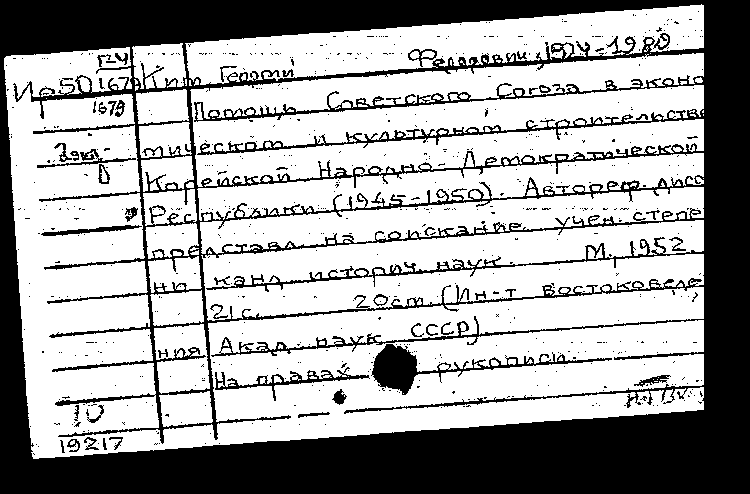 Ким Георгий Федорович, 1924-1989
Помощь Советского Союза в эконо
мическом и культурном строительстве
Корейской Народно-Демократической
Республики (1945-1950). Автореф. дисс
представл. на соискание учен. степе
ни канд историч. наук. М., 1952.
21 с. 20 см. (Ин-т востоковеде
ния Акад. наук СССР)
На правах рукописи.
10
19217